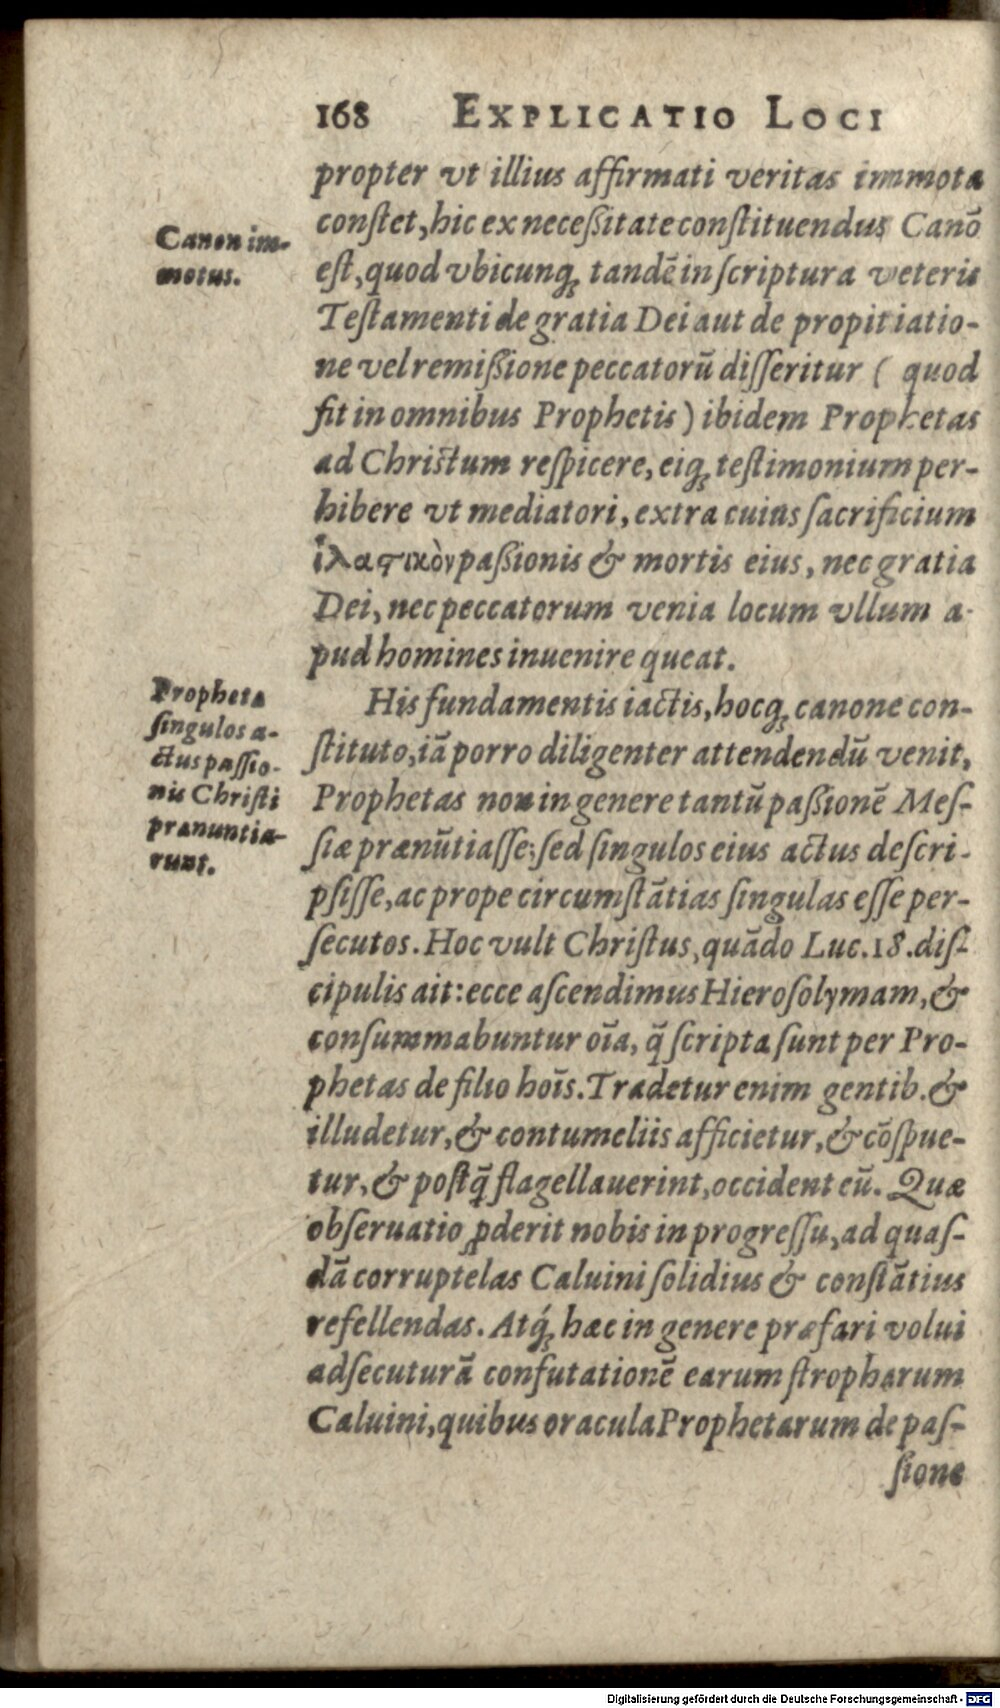 168 EXPLICATIO LOCI
propter vt illius affirmati veritas immota
conſtet, hic ex neceſsitate conſtituendus Canō
Canon im-
motus.
eſt, quod vbicunq; tandē in ſcriptura veteris
Teſtamenti de gratia Dei aut de propitiatio-
ne vel remiſsione peccatorū diſſeritur ( quod
fit in omnibus Prophetis) ibidem Prophetas
ad Chriſtum reſpicere, eiq; teſtimonium per-
hibere vt mediatori, extra cuius ſacrificium
ἱλαϛικὸν paſsionis & mortis eius, nec gratia
Dei, nec peccatorum venia locum vllum a-
pud homines inuenire queat.
Propheta
ſingulos a-
ctus paſſio-
nis Chriſti
prænuntia-
runt.
His fundamentis iactis, hocq; canone con-
ſtituto, iā porro diligenter attendendū venit,
Prophetas non in genere tantū paſsionē Meſ-
ſiæ prænūtiaſſe; ſed ſingulos eius actus deſcri-
pſiſſe, ac prope circumſtātias ſingulas eſſe per-
ſecutos. Hoc vult Chriſtus, quādo Luc. 18. diſ-
cipulis ait: ecce aſcendimus Hieroſolymam, &
conſummabuntur oīa, q̄ ſcripta ſunt per Pro-
phetas de filio hoīs. Tradetur enim gentib. &
illudetur, & contumeliis afficietur, & cōſpue-
tur, & poſtq̄ flagellauerint, occident eū. Quæ
obſeruatio ꝓderit nobis in progreſſu, ad quaſ-
dā corruptelas Caluini ſolidius & conſtātius
refellendas. Atq́; hæc in genere præfari volui
ad ſecuturā confutationē earum ſtropharum
Caluini, quibus oracula Prophetarum de paſ-
ſione
Digitalisierung gefördert durch die Deutsche Forschungsgemeinschaft - DFG